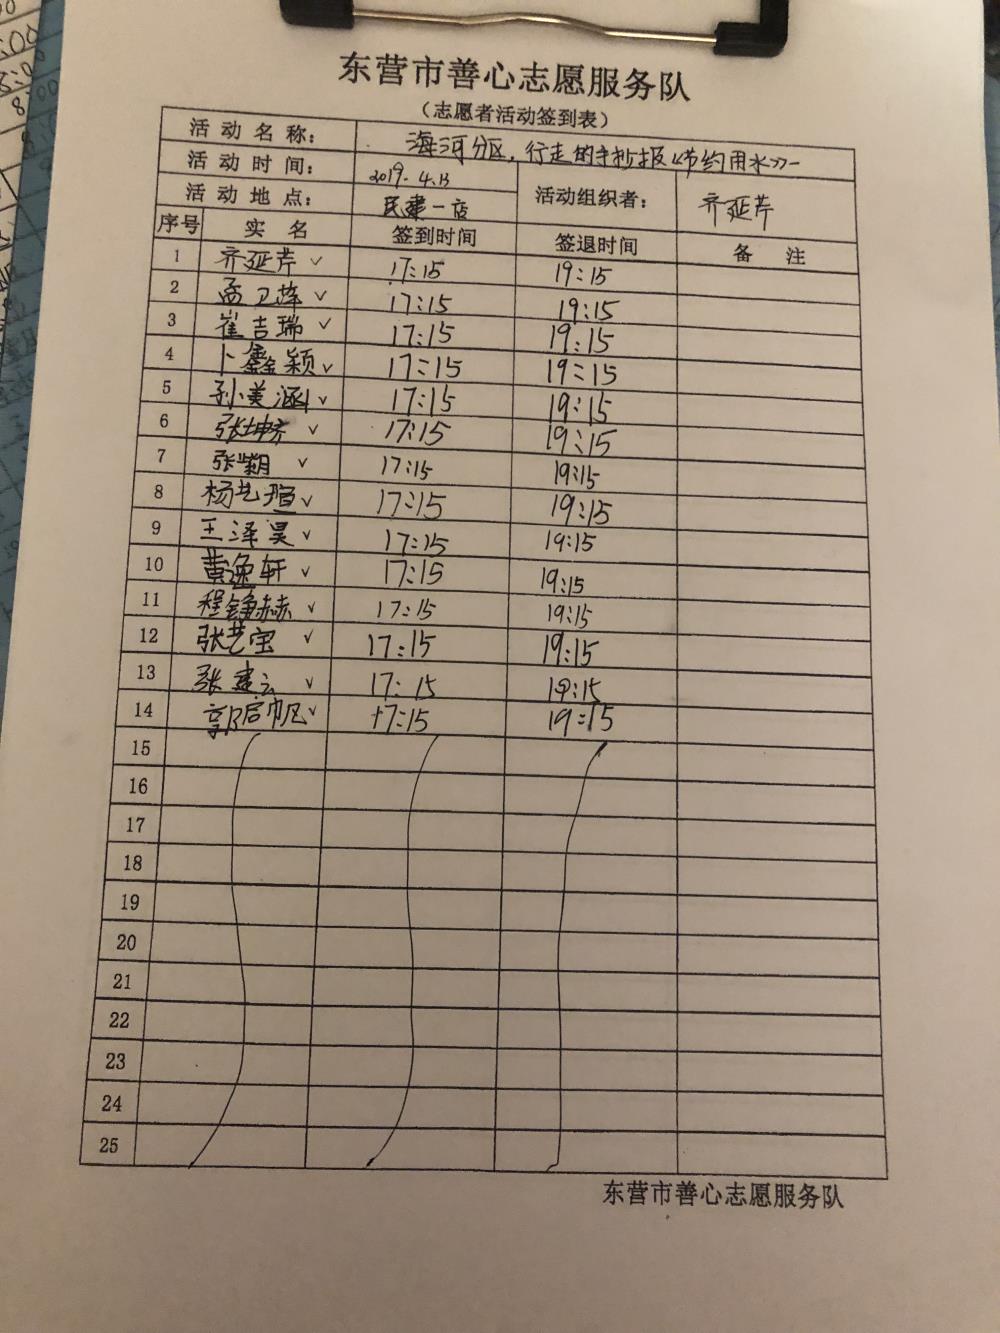 东营市善心志愿服务队
（志愿者活动签到表）
活动名称： 海河分区，行走的手抄报《节约用水》一
活动时间： 2019.4.13 活动组织者： 齐延芹
活动地点： 民建一店
序号 实名 签到时间 签退时间 备注
1 齐延芹 ✓ 17:15 19:15
2 孟卫萍 ✓ 17:15 19:15
3 崔吉瑞 ✓ 17:15 19:15
4 卜鑫颖 ✓ 17:15 19:15
5 孙美涵 ✓ 17:15 19:15
6 张坤齐 ✓ 17:15 19:15
7 张 ✓ 17:15 19:15
8 杨艺瑄 ✓ 17:15 19:15
9 王泽昊 ✓ 17:15 19:15
10 黄逸轩 ✓ 17:15 19:15
11 程铮赫 ✓ 17:15 19:15
12 张艺宝 ✓ 17:15 19:15
13 张建云 ✓ 17:15 19:15
14 郭启帆 ✓ 17:15 19:15
15
16
17
18
19
20
21
22
23
24
25
东营市善心志愿服务队